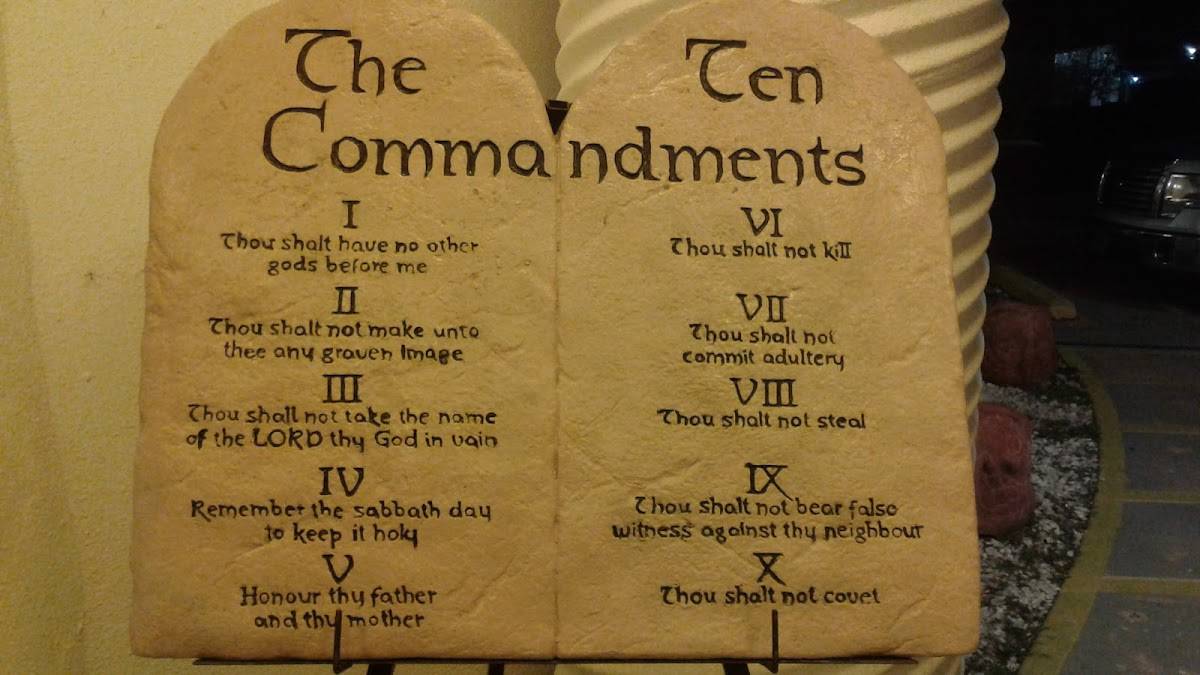 The Ten
Commandments
I
Thou shalt have no other
gods before me
II
Thou shalt not make unto
thee any graven Image
III
Thou shall not take the name
of the LORD thy God in vain
IV
Remember the sabbath day
to keep it holy
V
Honour thy father
and thy mother
VI
Thou shalt not kill
VII
Thou shall not
commit adultery
VIII
Thou shalt not steal
IX
Thou shalt not bear false
witness against thy neighbour
X
Thou shalt not covet